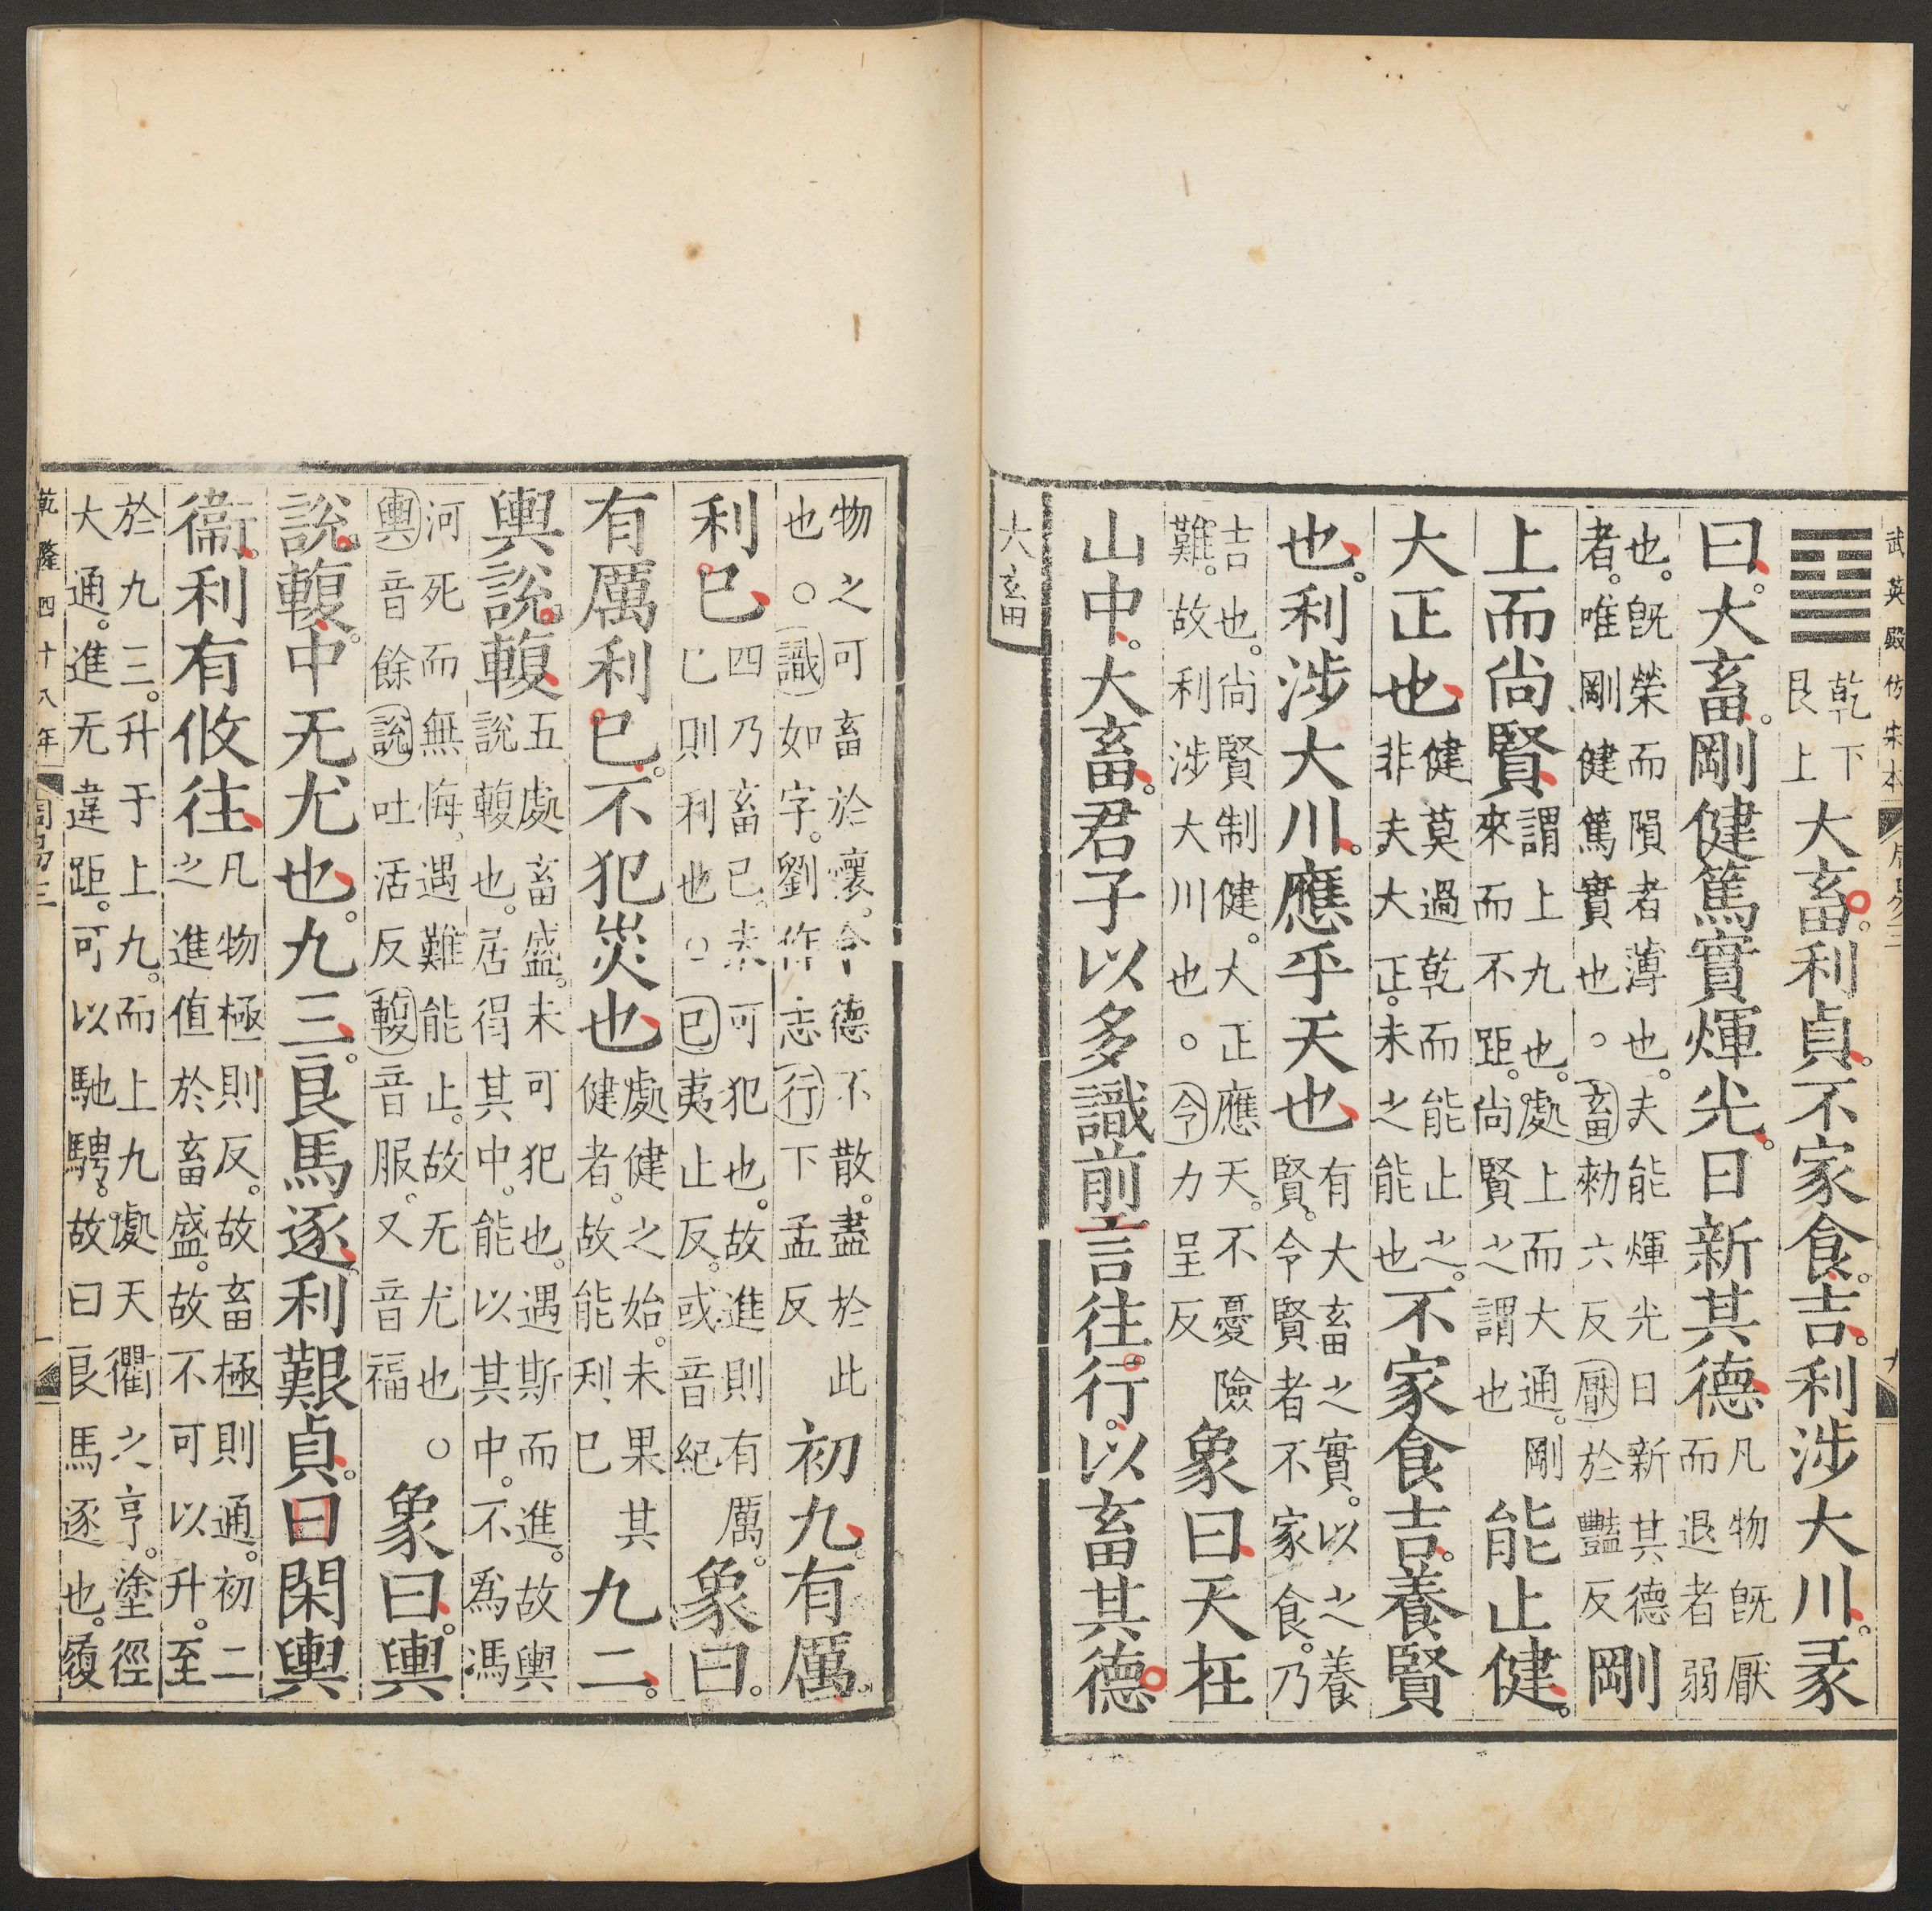 武英殿仿宋本 周易三 九
䷙乾下艮上大畜。利貞。不家食。吉。利涉大川。彖
曰。大畜。剛健篤實煇光。日新其德凡物旣厭而退者弱
也。旣榮而隕者薄也。夫能煇光日新其德者。唯剛健篤實也。○畜勑六反厭於豔反剛
上而尚賢謂上九也。處上而大通。剛來而不距。尚賢之謂也能止健。
大正也健莫過乾而能止之。非夫大正。未之能也不家食吉。養賢
也。利涉大川。應乎天也有大畜之實。以之養賢。令賢者不家食。乃
吉也。尚賢制健。大正應天。不憂險難。故利涉大川也。○令力呈反象曰天在
山中。大畜。君子以多識前言往行。以畜其德
大畜
物之可畜於懷。令德不散。盡於此也。○識如字。劉作志行下孟反初九。有厲
利已四乃畜已。未可犯也。故進則有厲。已則利也。○已夷止反。或音紀象曰。
有厲利已。不犯災也處健之始。未果其健者。故能利已九二。
輿說。輹五處畜盛。未可犯也。遇斯而進。故輿說輹也。居得其中。能以其中。不爲馮
河死而無悔。遇難能止。故无尤也。○輿音餘說吐活反輹音服。又音福象曰。輿
說。輹。中无尤也。九三。良馬逐。利艱貞。曰閑輿
衞。利有攸往凡物極則反。故畜極則通。初二之進值於畜盛。故不可以升。至
於九三。升于上九。而上九。處天衢之亨。塗徑大通。進无違距。可以馳騁。故曰良馬逐也。履
乾隆四十八年 周易三